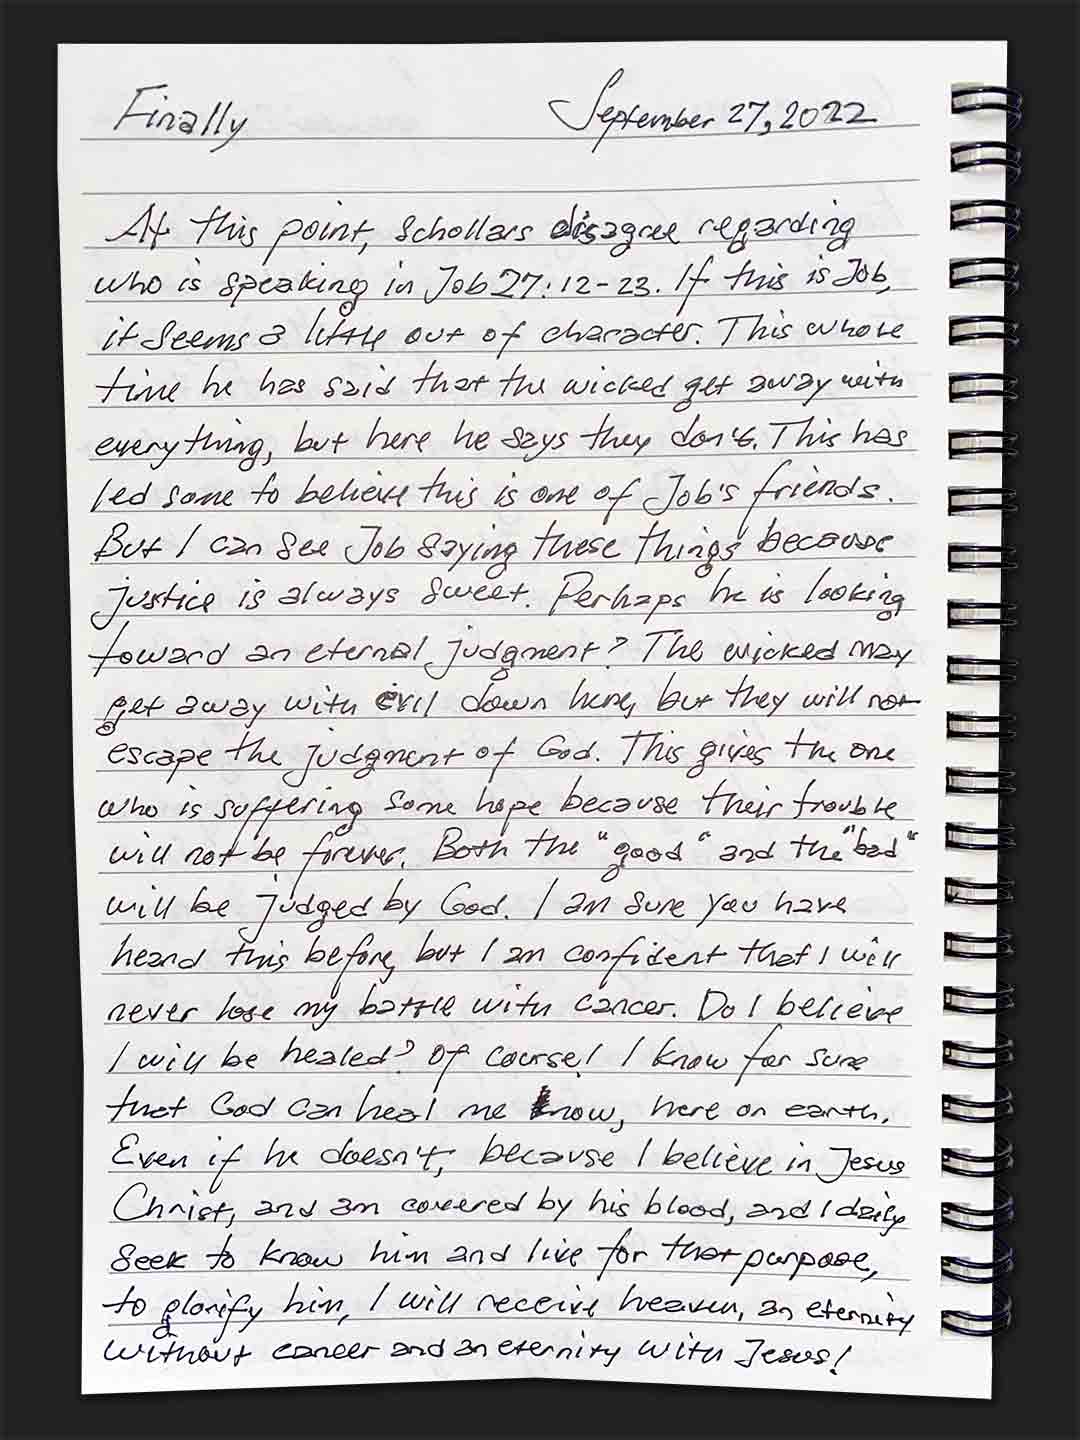 Finally September 27, 2022
At this point, Schollars disagree regarding
who is speaking in Job 27:12-23. If this is Job,
it seems a little out of character. This whole
time he has said that the wicked get away with
everything, but here he says they don't. This has
led some to believe this is one of Job's friends.
But I can see Job saying these things because
justice is always sweet. Perhaps he is looking
toward an eternal judgment? The wicked may
get away with evil down here, but they will not
escape the judgment of God. This gives the one
who is suffering some hope because their trouble
will not be forever. Both the "good" and the "bad"
will be judged by God. I am sure you have
heard this before, but I am confident that I will
never lose my battle with cancer. Do I believe
I will be healed? Of course! I know for sure
that God can heal me now, here on earth.
Even if he doesn't, because I believe in Jesus
Christ, and am covered by his blood, and I daily
seek to know him and live for that purpose,
to glorify him, I will receive heaven, an eternity
without cancer and an eternity with Jesus!